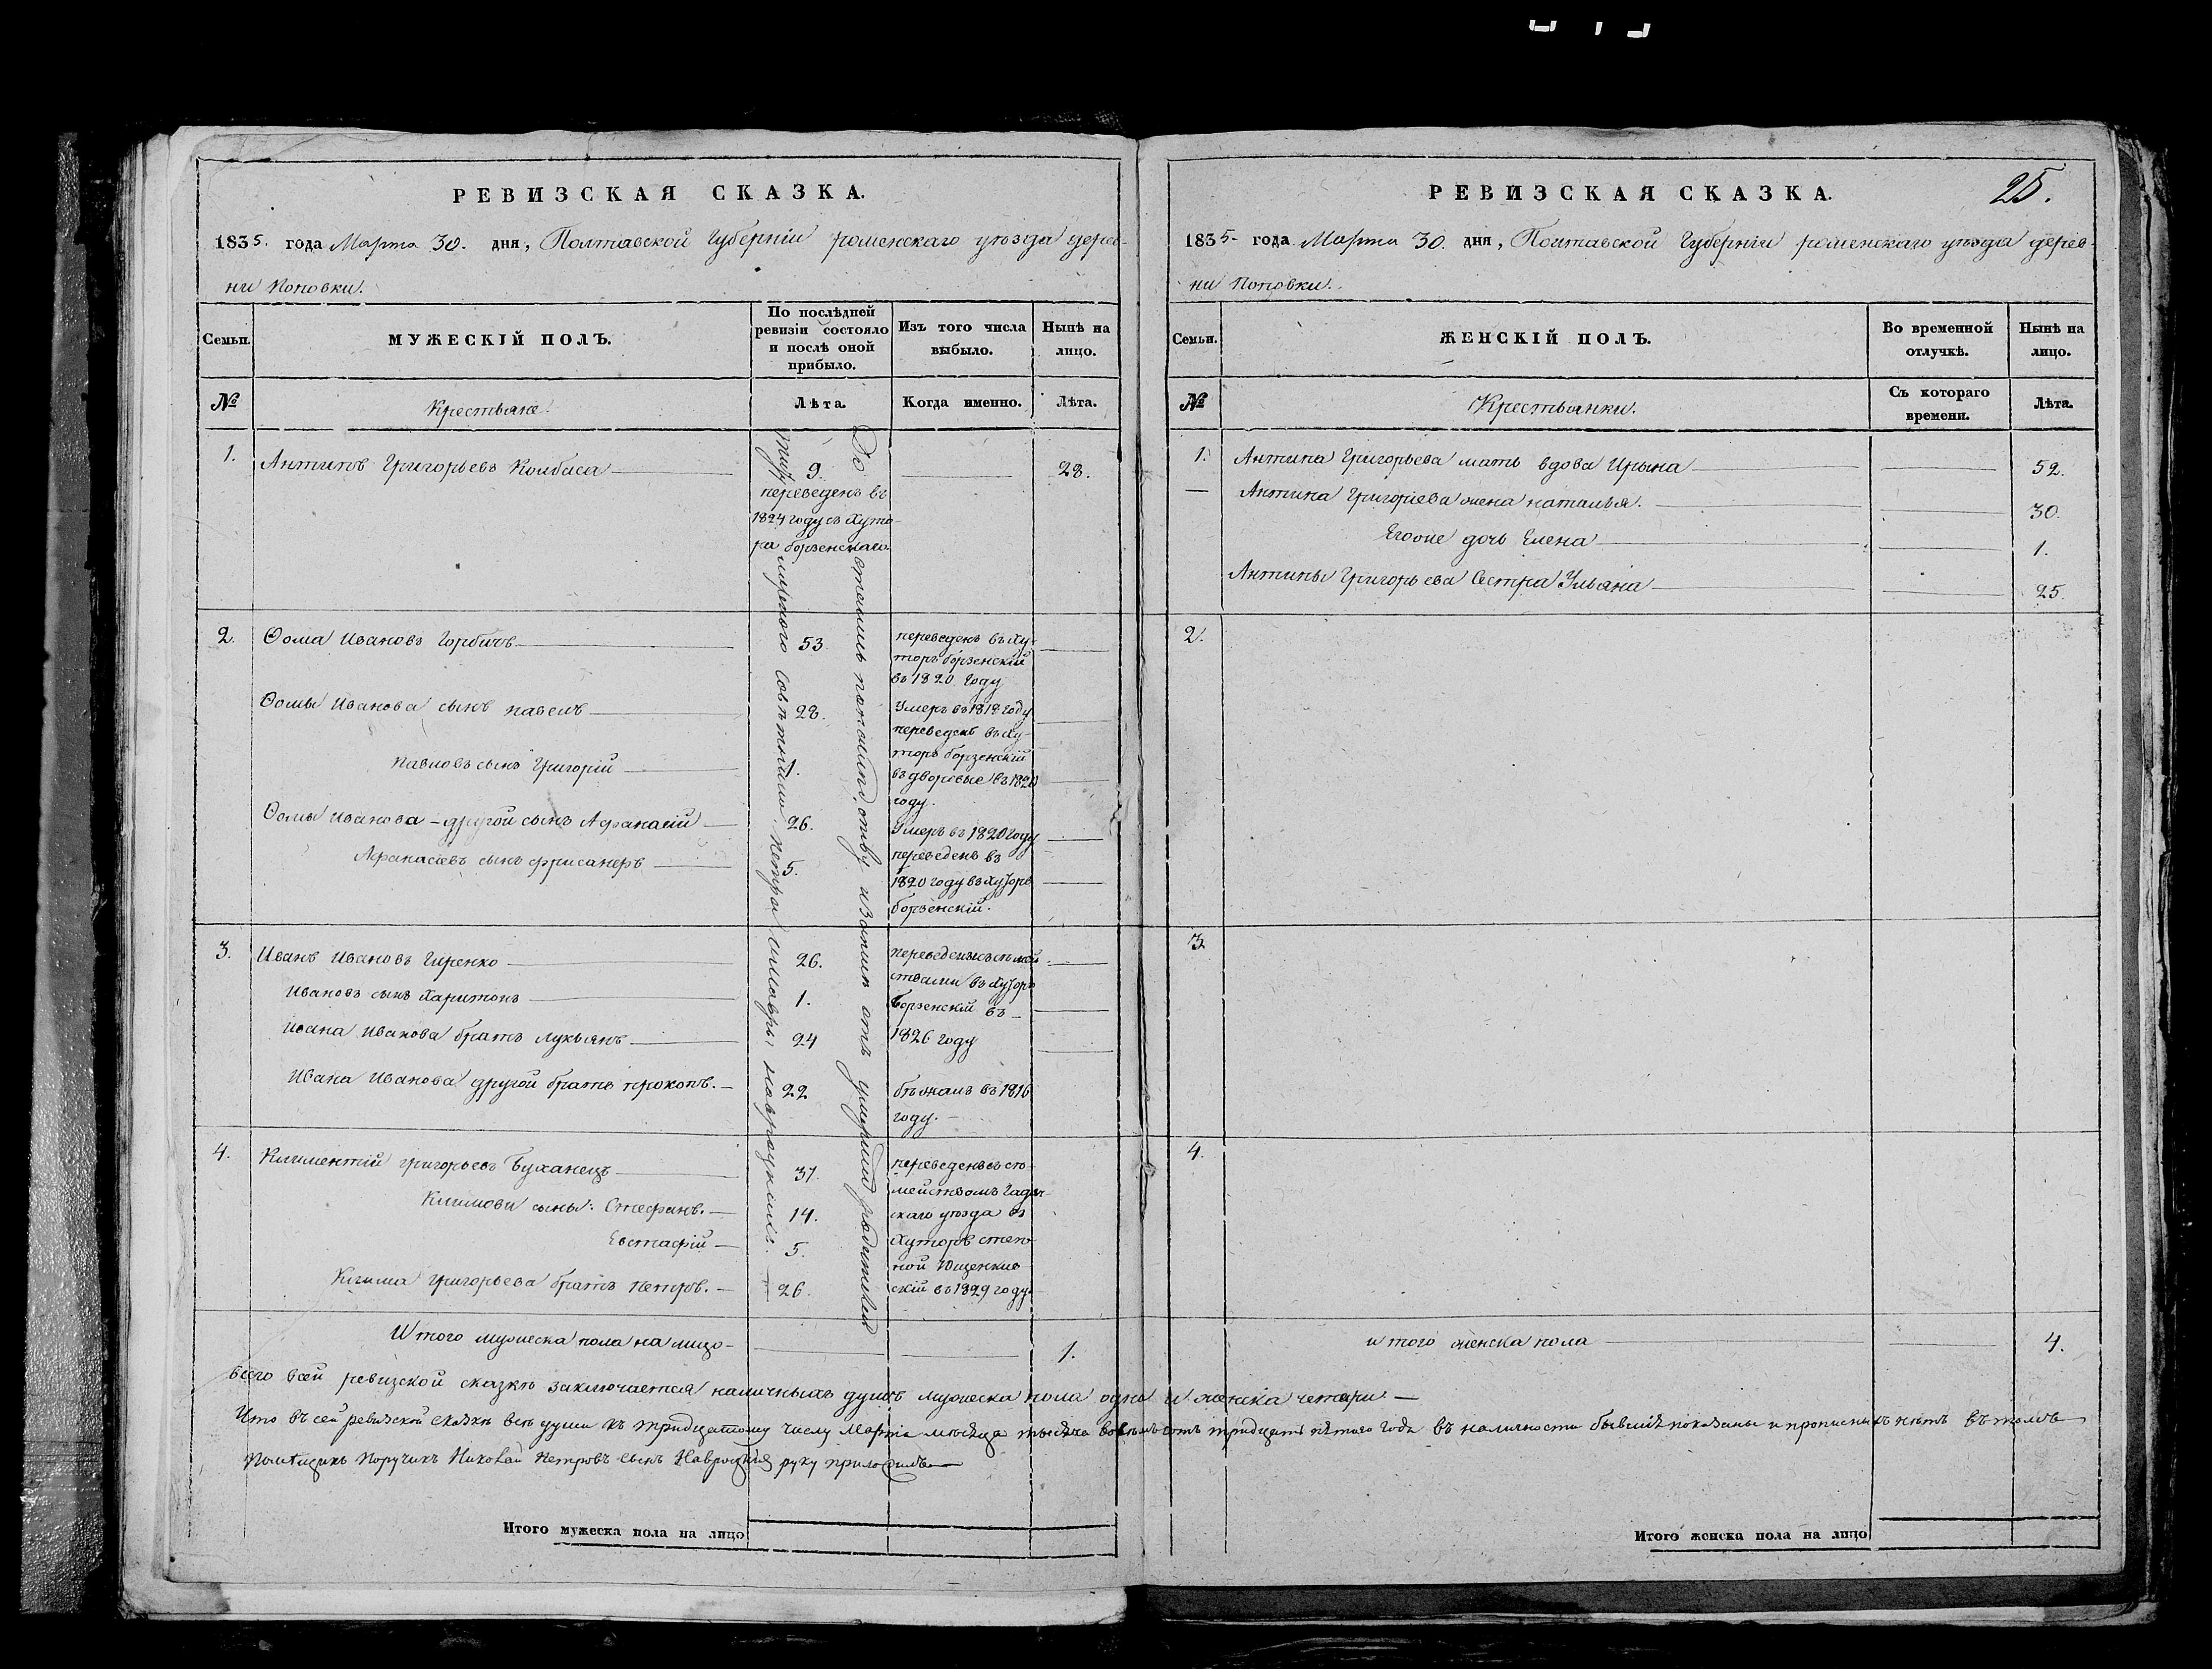 РЕВИЗСКАЯ СКАЗКА.
1835. года Марта 30. дня, Полтавской Губерніи роменскаго уѣзда дерев-
ни Поповки.
Семьи.
МУЖЕСКІЙ ПОЛЪ.
По послѣдней ревизіи состояло и послѣ оной прибыло.
Изъ того числа выбыло.
Нынѣ на лицо.
№
Крестьяне.
Лѣта.
Когда именно.
Лѣта.
1. Антипъ Григорьевъ Колбаса 9. 28.
переведенъ въ
1824 году съ Хуто-
ра борзенскаго
2. Ѳома Ивановъ Горбичъ 53. переведенъ въ ху-
торъ борзенскій
въ 1820 году
Ѳомы Иванова сынъ павелъ 28. Умеръ въ 1818 году
переведенъ въ Ху-
торъ борзенскій
Павловъ сынъ Григорій 7. въ дворовые въ 1820
году.
Ѳомы Иванова - другой сынъ Афанасій 26. Умеръ въ 1820 году
Афанасіевъ сынъ 5. переведенъ въ
1820 году въ Хуторъ
борзенскій.
3. Иванъ Ивановъ Гиренко 26.
Ивановъ сынъ Харитонъ 1. ствами въ Хуторъ
Борзенскій въ
Ивана Иванова братъ Лукьянъ 24 1826 году
Ивана Иванова другой братъ прокопъ. 22 бѣжалъ въ 1816
году.
4. Климентій григорьевъ Буханецъ 37. переведенъ съ сѣ-
мействомъ Гадяч-
Климови сыны: Стефанъ. 14. скаго уѣзда въ
Евстафій 5. Хуторъ степ-
ной
Клима григорьева братъ петръ. 26. скій въ 1829 году.
До
Итого мужеска пола на лицо 1.
всего всей ревизской сказкѣ заключается наличныхъ душъ мужеска пола одна и женска четыри
Что въ сей ревизской сказкѣ всѣ души къ тридцатому числу Марта мѣсяца тысяча восемъсотъ тридцать пятаго года въ наличности бывшіе показаны и прописныхъ нѣтъ въ томъ
Помѣщикъ Поручикъ Николай Петровъ сынъ Навроцкій руку приложилъ
Итого мужеска пола на лицо
РЕВИЗСКАЯ СКАЗКА.
25.
1835 года Марта 30. дня, Полтавской Губерніи роменскаго уѣзда дерев-
ни Поповки.
Семьи.
ЖЕНСКІЙ ПОЛЪ.
Во временной отлучкѣ.
Нынѣ на лицо.
№
Крестьянки.
Съ котораго времени.
Лѣта.
1. Антипа Григорьева мать вдова Ирына 52.
Антипа Григоріева жена наталья. 30.
Егоже дочь Елена 1.
Антипы Григорьева Сестра Ульяна 25.
2.
3
4.
итого женска пола 4.
Итого женска пола на лицо